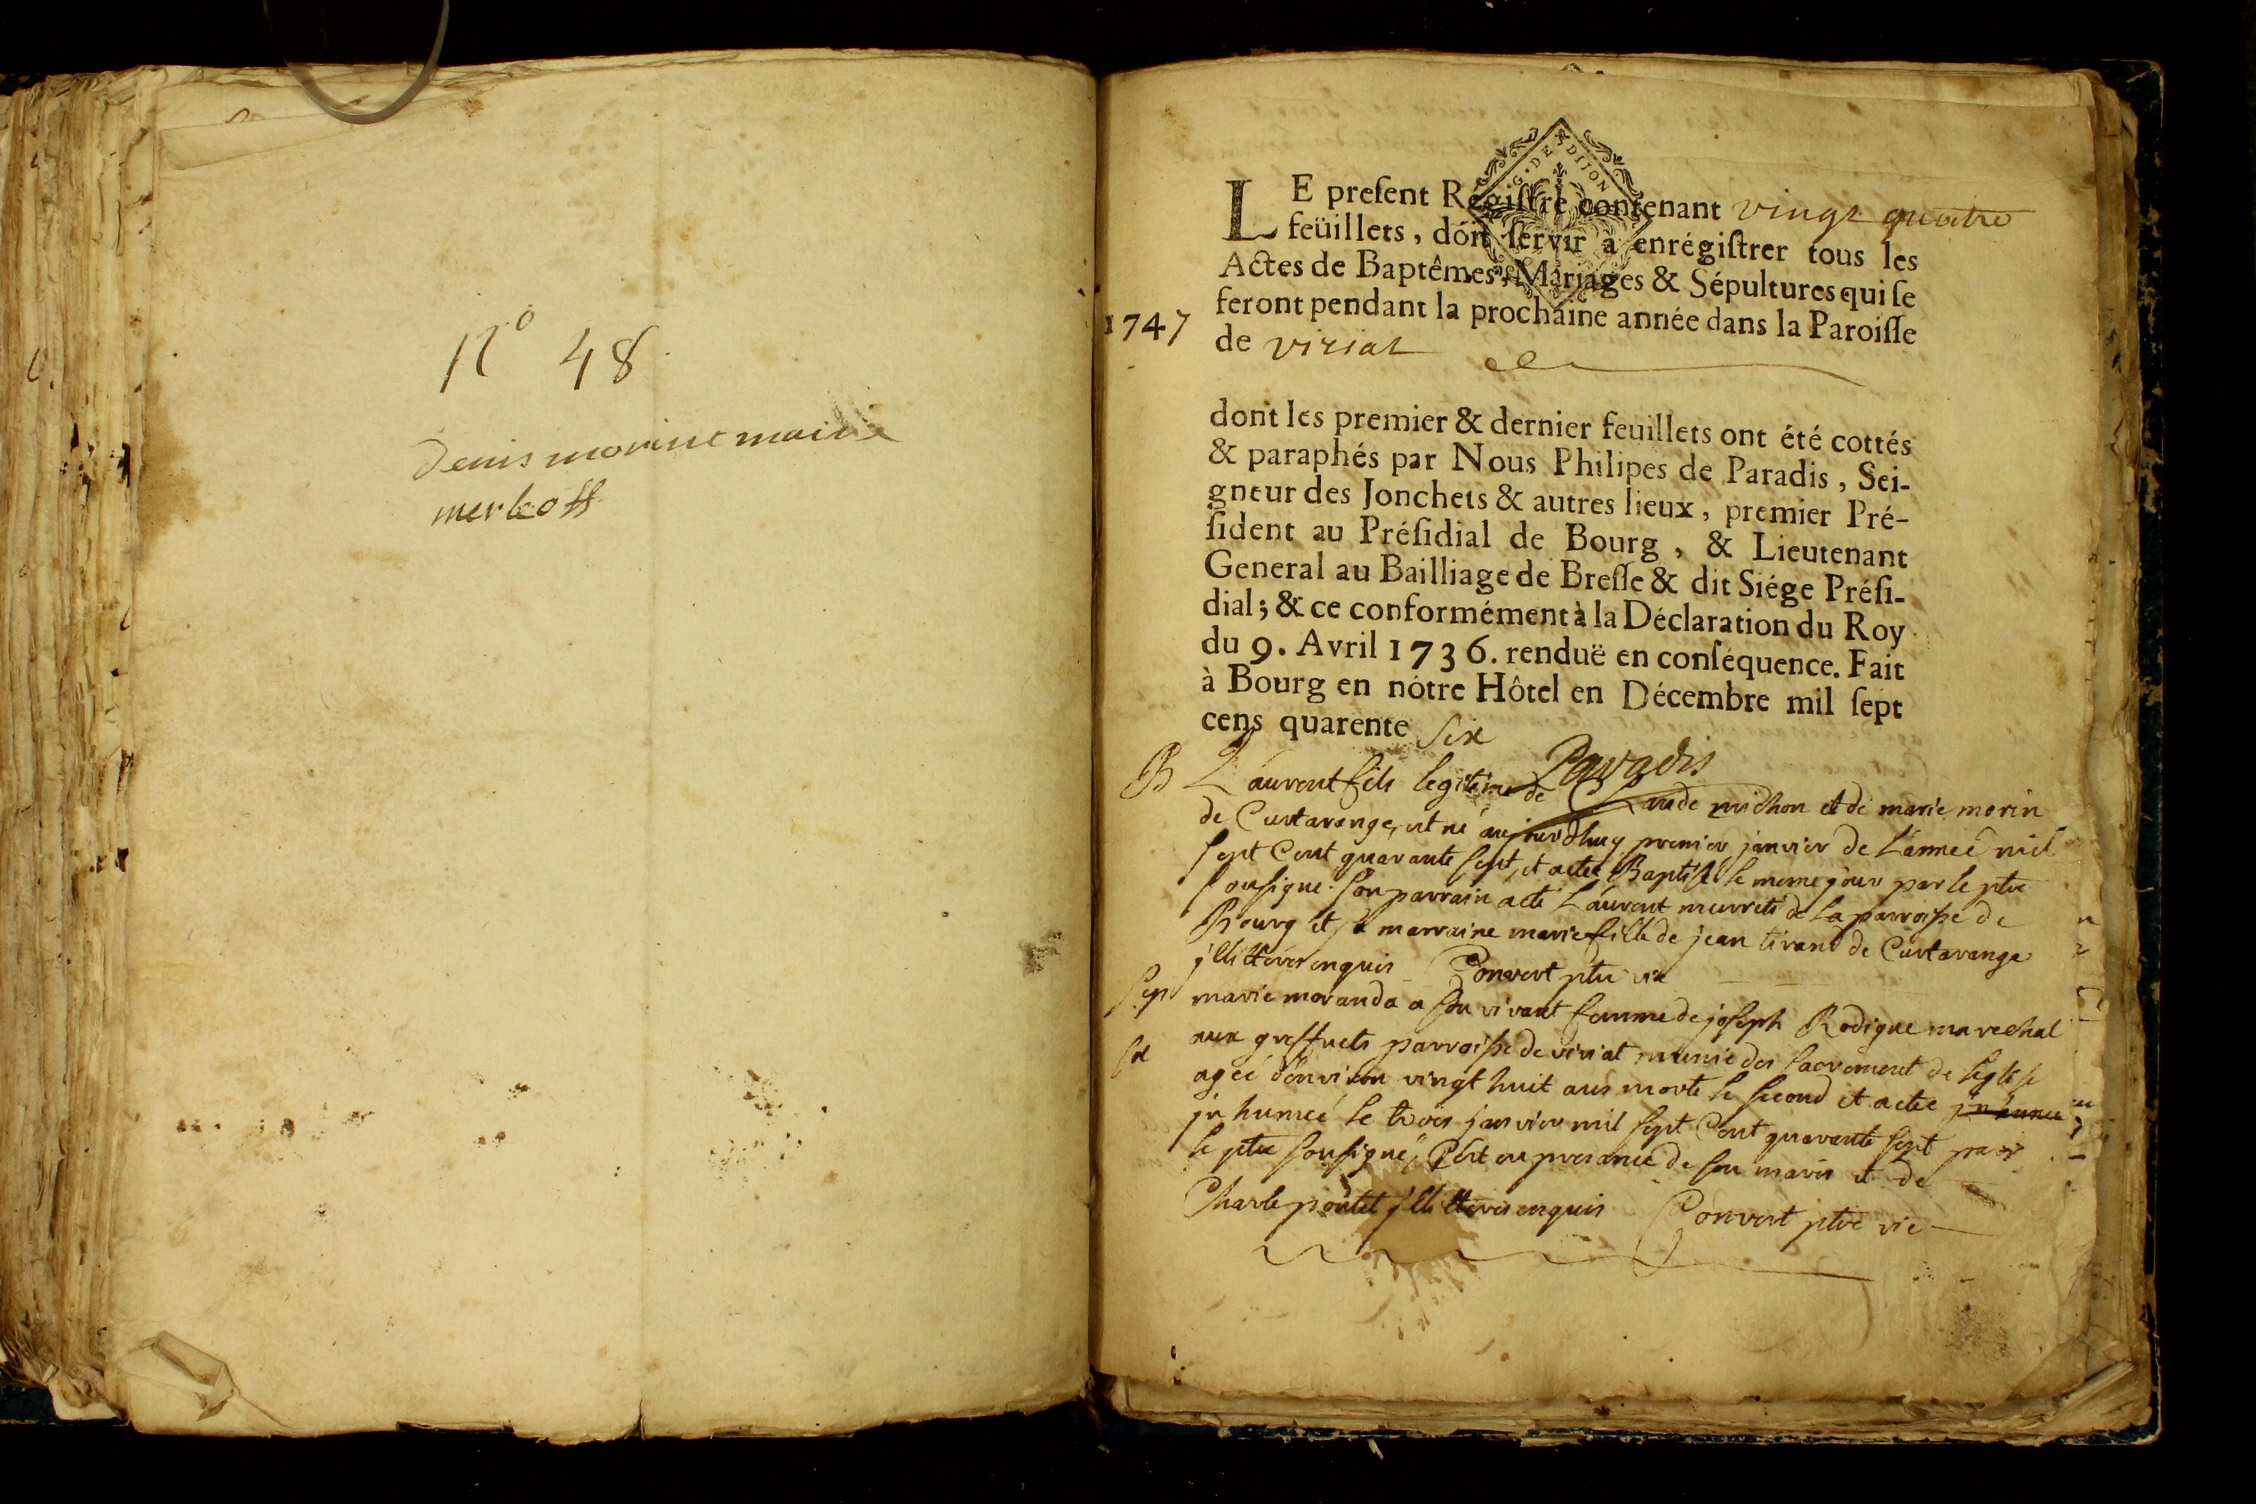 n° 48
denis morin
G. DE DIJON
LE preſent Régiſtre contenant vingt quatre
feüillets, doit ſervir à enrégiſtrer tous les
Actes de Baptêmes, Mariages & Sépultures qui ſe
feront pendant la prochaine année dans la Paroiſſe
1747
de viriat
dont les premier & dernier feuillets ont été cottés
& paraphés par Nous Philipes de Paradis, Sei-
gneur des Jonchets & autres lieux, premier Pré-
ſident au Préſidial de Bourg, & Lieutenant
General au Bailliage de Breſſe & dit Siége Préſi-
dial; & ce conformément à la Déclaration du Roy
du 9. Avril 1736. renduë en conſéquence. Fait
à Bourg en nôtre Hôtel en Décembre mil ſept
cens quarente six
Paradis
B Laurent fils legitime de Claude michon et de marie morin
de Curtarange, est né aujourdhuy premier janvier de Lannée mil
sept Cent quarante sept, et a eté Baptisé le meme jour par le ptre
sousigné. son parrain a eté Laurent de La parroisse de
Bourg et sa marraine marie fille de jean tirand de Curtarange
jllitterés enquis Convert ptre vic
Sep marie moranda a son vivant femme de joseph Rodigue marechal
aux greffets parroisse de viriat munie des sacrement de leglise
agée denviron vingt huit ans morte le second et a etée
jnhumeé le trois janvier mil sept Cent quarante sept par
le ptre sousigné, Cest en presance de son maris et de
Charle poutet jllitterés enquis Convert ptre vic